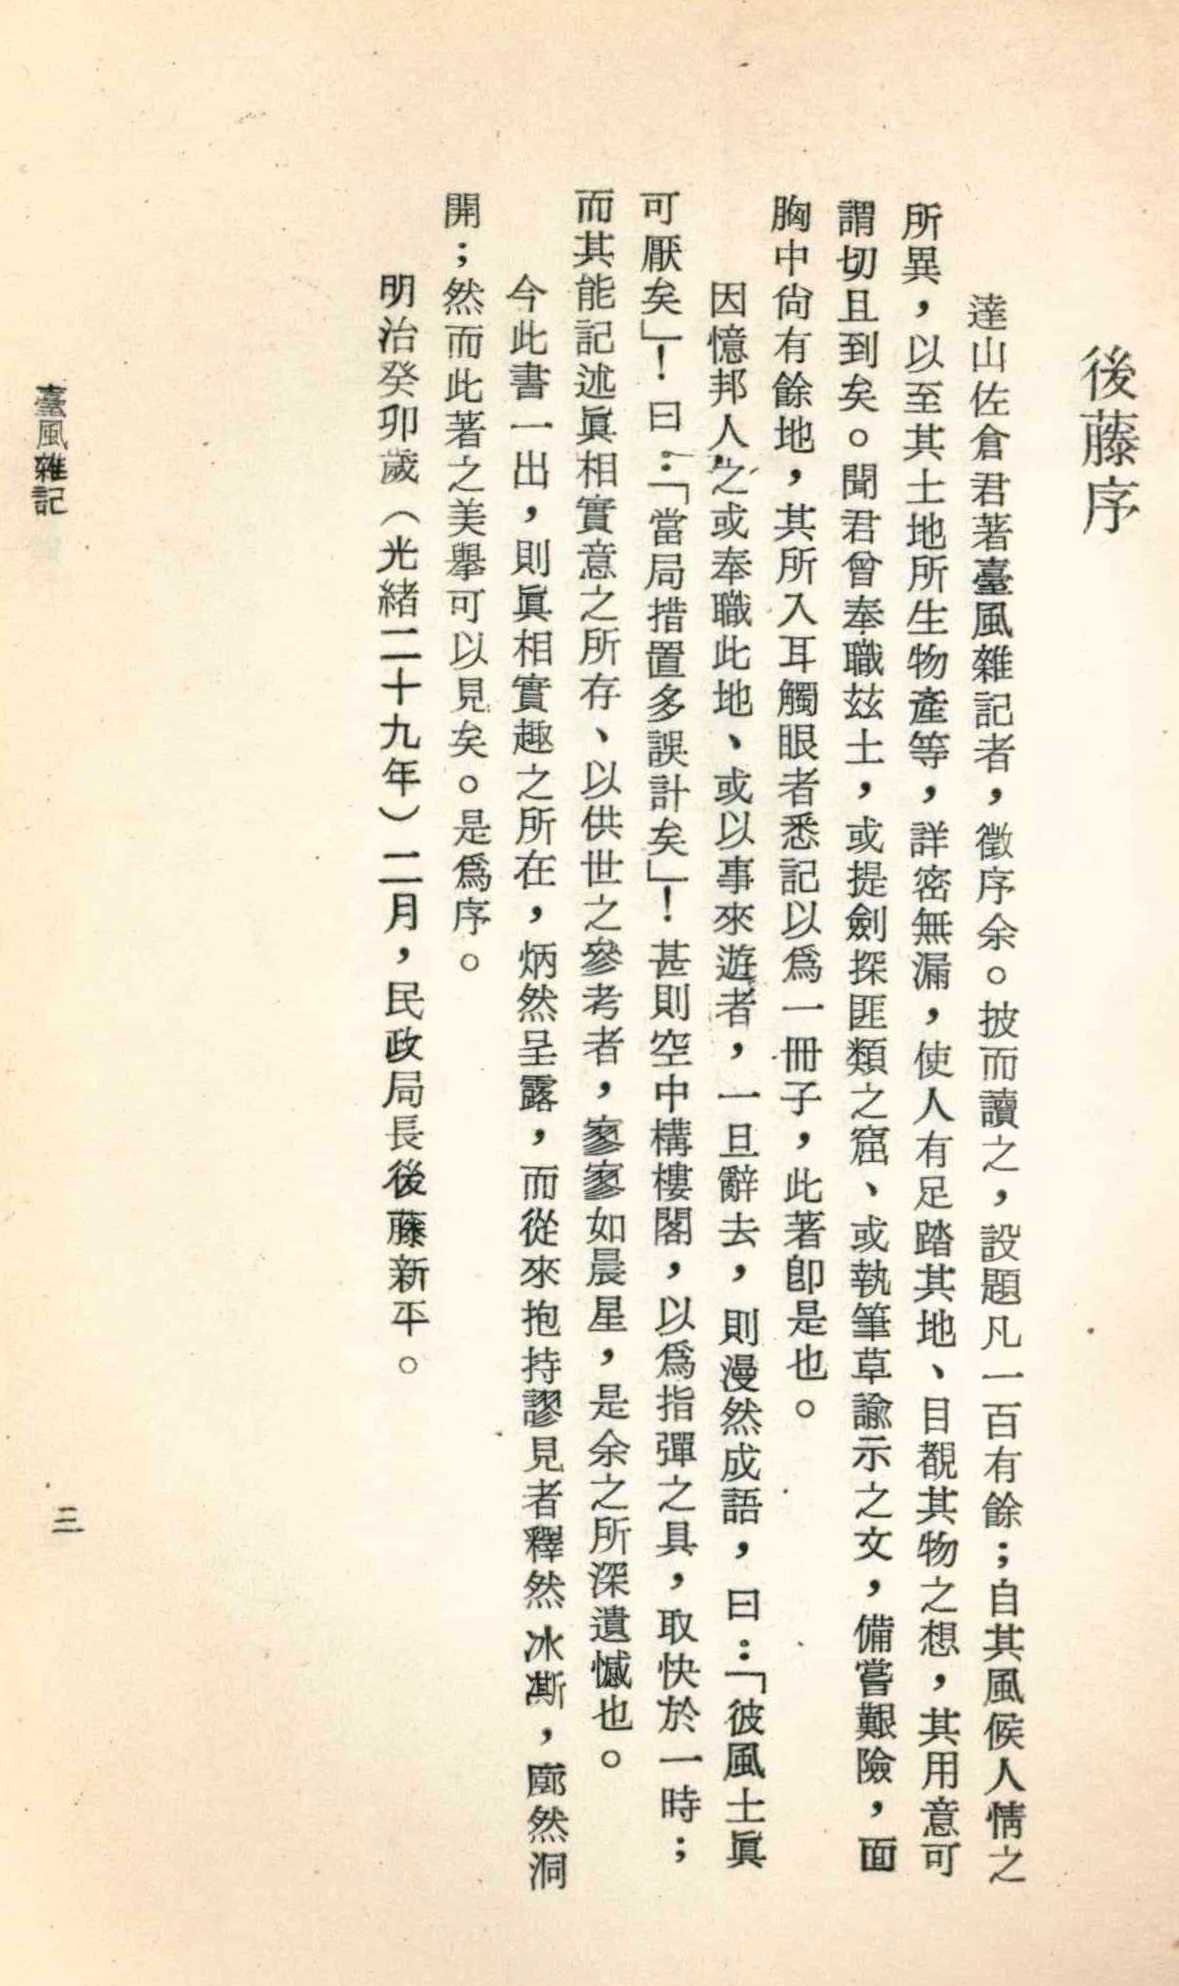 後藤序
達山佐倉君著臺風雜記者，徵序余。披而讀之，設題凡一百有餘；自其風候人情之
所異，以至其土地所生物產等，詳密無漏，使人有足踏其地、目覩其物之想，其用意可
謂切且到矣。聞君曾奉職玆土，或提劍探匪類之窟、或執筆草諭示之文，備嘗艱險，面
胸中尙有餘地，其所入耳觸眼者悉記以爲一冊子，此著卽是也。
因憶邦人之或奉職此地、或以事來遊者，一旦辭去，則漫然成語，曰：「彼風土眞
可厭矣」！曰：「當局措置多誤計矣」！甚則空中構樓閣，以爲指彈之具，取快於一時；
而其能記述眞相實意之所存、以供世之參考者，寥寥如晨星，是余之所深遺憾也。
今此書一出，則眞相實趣之所在，炳然呈露，而從來抱持謬見者釋然冰凘，廓然洞
開；然而此著之美擧可以見矣。是爲序。
明治癸卯歲（光緒二十九年）二月，民政局長後藤新平。
臺風雜記
三